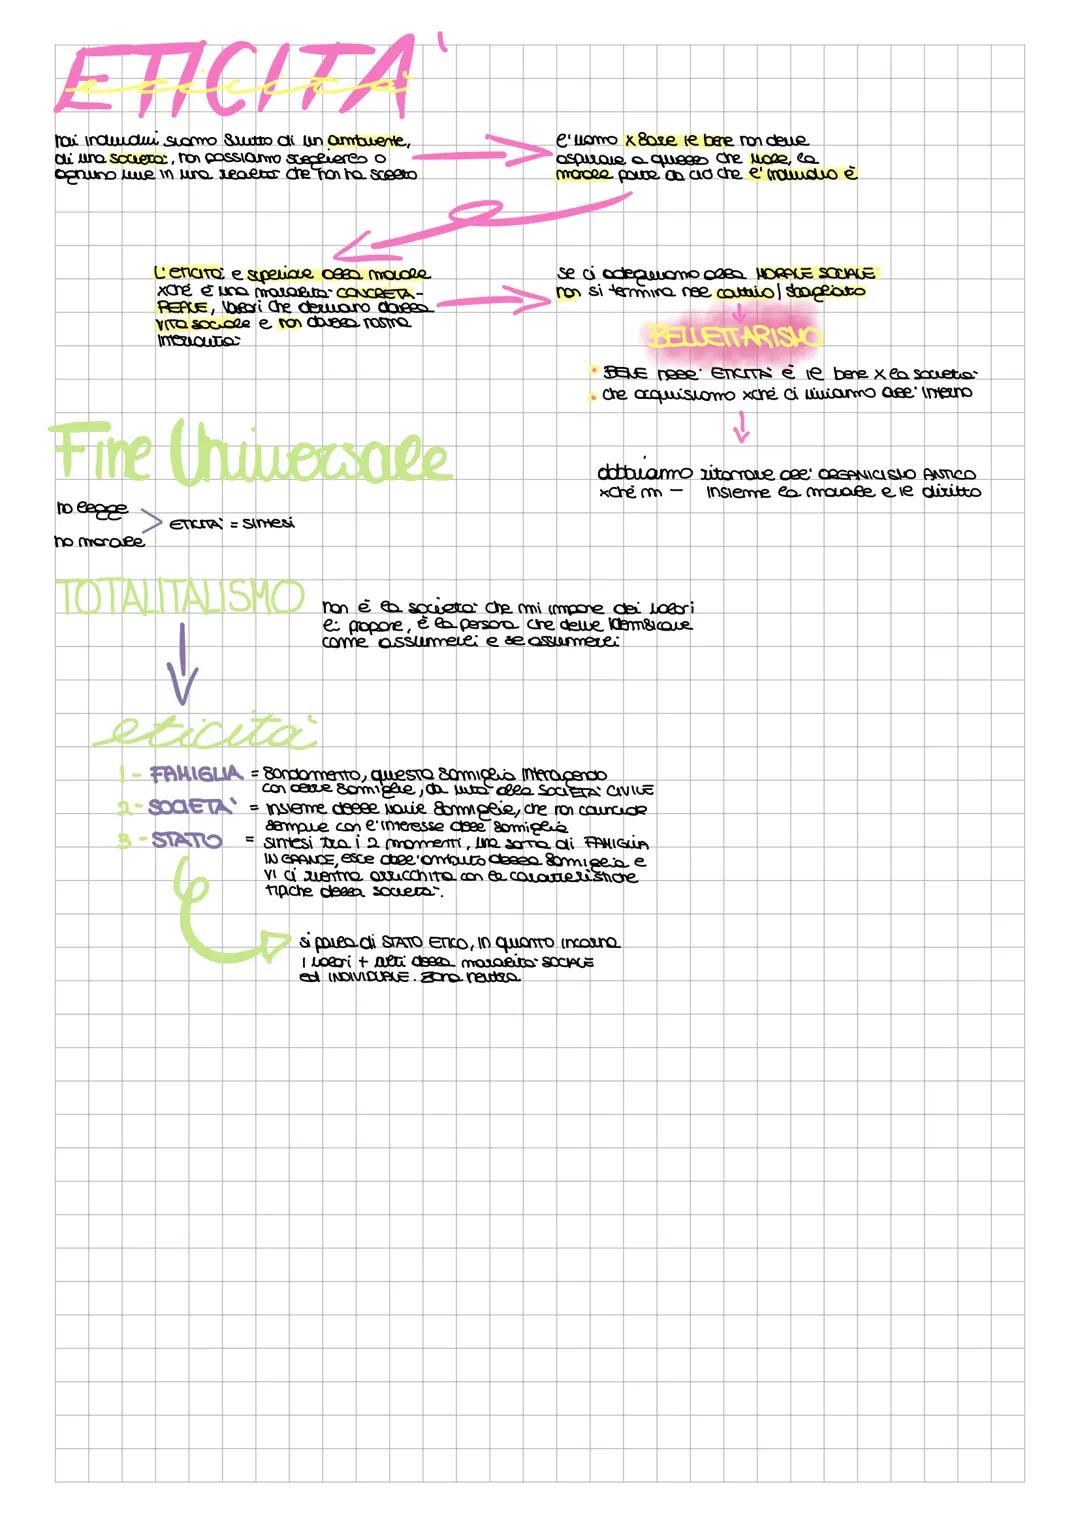 ETICITA'
eticità
noi individui siamo frutto di un ambiente,
di una società, non possiamo sceglierlo o
ognuno vive in una realtà che non ha scelto
l'uomo x fare il bene non deve
aspirare a quello che vuole, la
morale parte da ciò che l'individuo è
L'ETICITÀ è superiore alla morale
xché è una moralità CONCRETA-
REALE, valori che derivano dalla
VITA sociale e non dalla nostra
interiorità
se ci adeguiamo alla MORALE SOCIALE
non si termina nel cattivo/sbagliato
BELLETTARISMO
• BENE nell' ETICITÀ è il bene x la società
• che acquisiamo xché ci viviamo all' interno
dobbiamo ritornare all' ORGANICISMO ANTICO
xché in - insieme la morale e il diritto
Fine Universale
no legge
> ETICITÀ = SINTESI
no morale
TOTALITALISMO
non è la società che mi impone dei valori
li propone, è la persona che deve identificare
come assumerli e se assumerli
eticità
1- FAMIGLIA = fondamento, questa famiglia interagendo
con altre famiglie, dà vita alla SOCIETÀ CIVILE
2- SOCIETA' = insieme delle varie famiglie, che non coincide
sempre con l'interesse delle famiglie
3- STATO = sintesi tra i 2 momenti, una sorta di FAMIGLIA
IN GRANDE, esce dall'ambito della famiglia e
vi ci rientra arricchita con le caratteristiche
tipiche della società.
si parla di STATO ETICO, in quanto incarna
i valori + alti della moralità SOCIALE
ed INDIVIDUALE. zona neutra